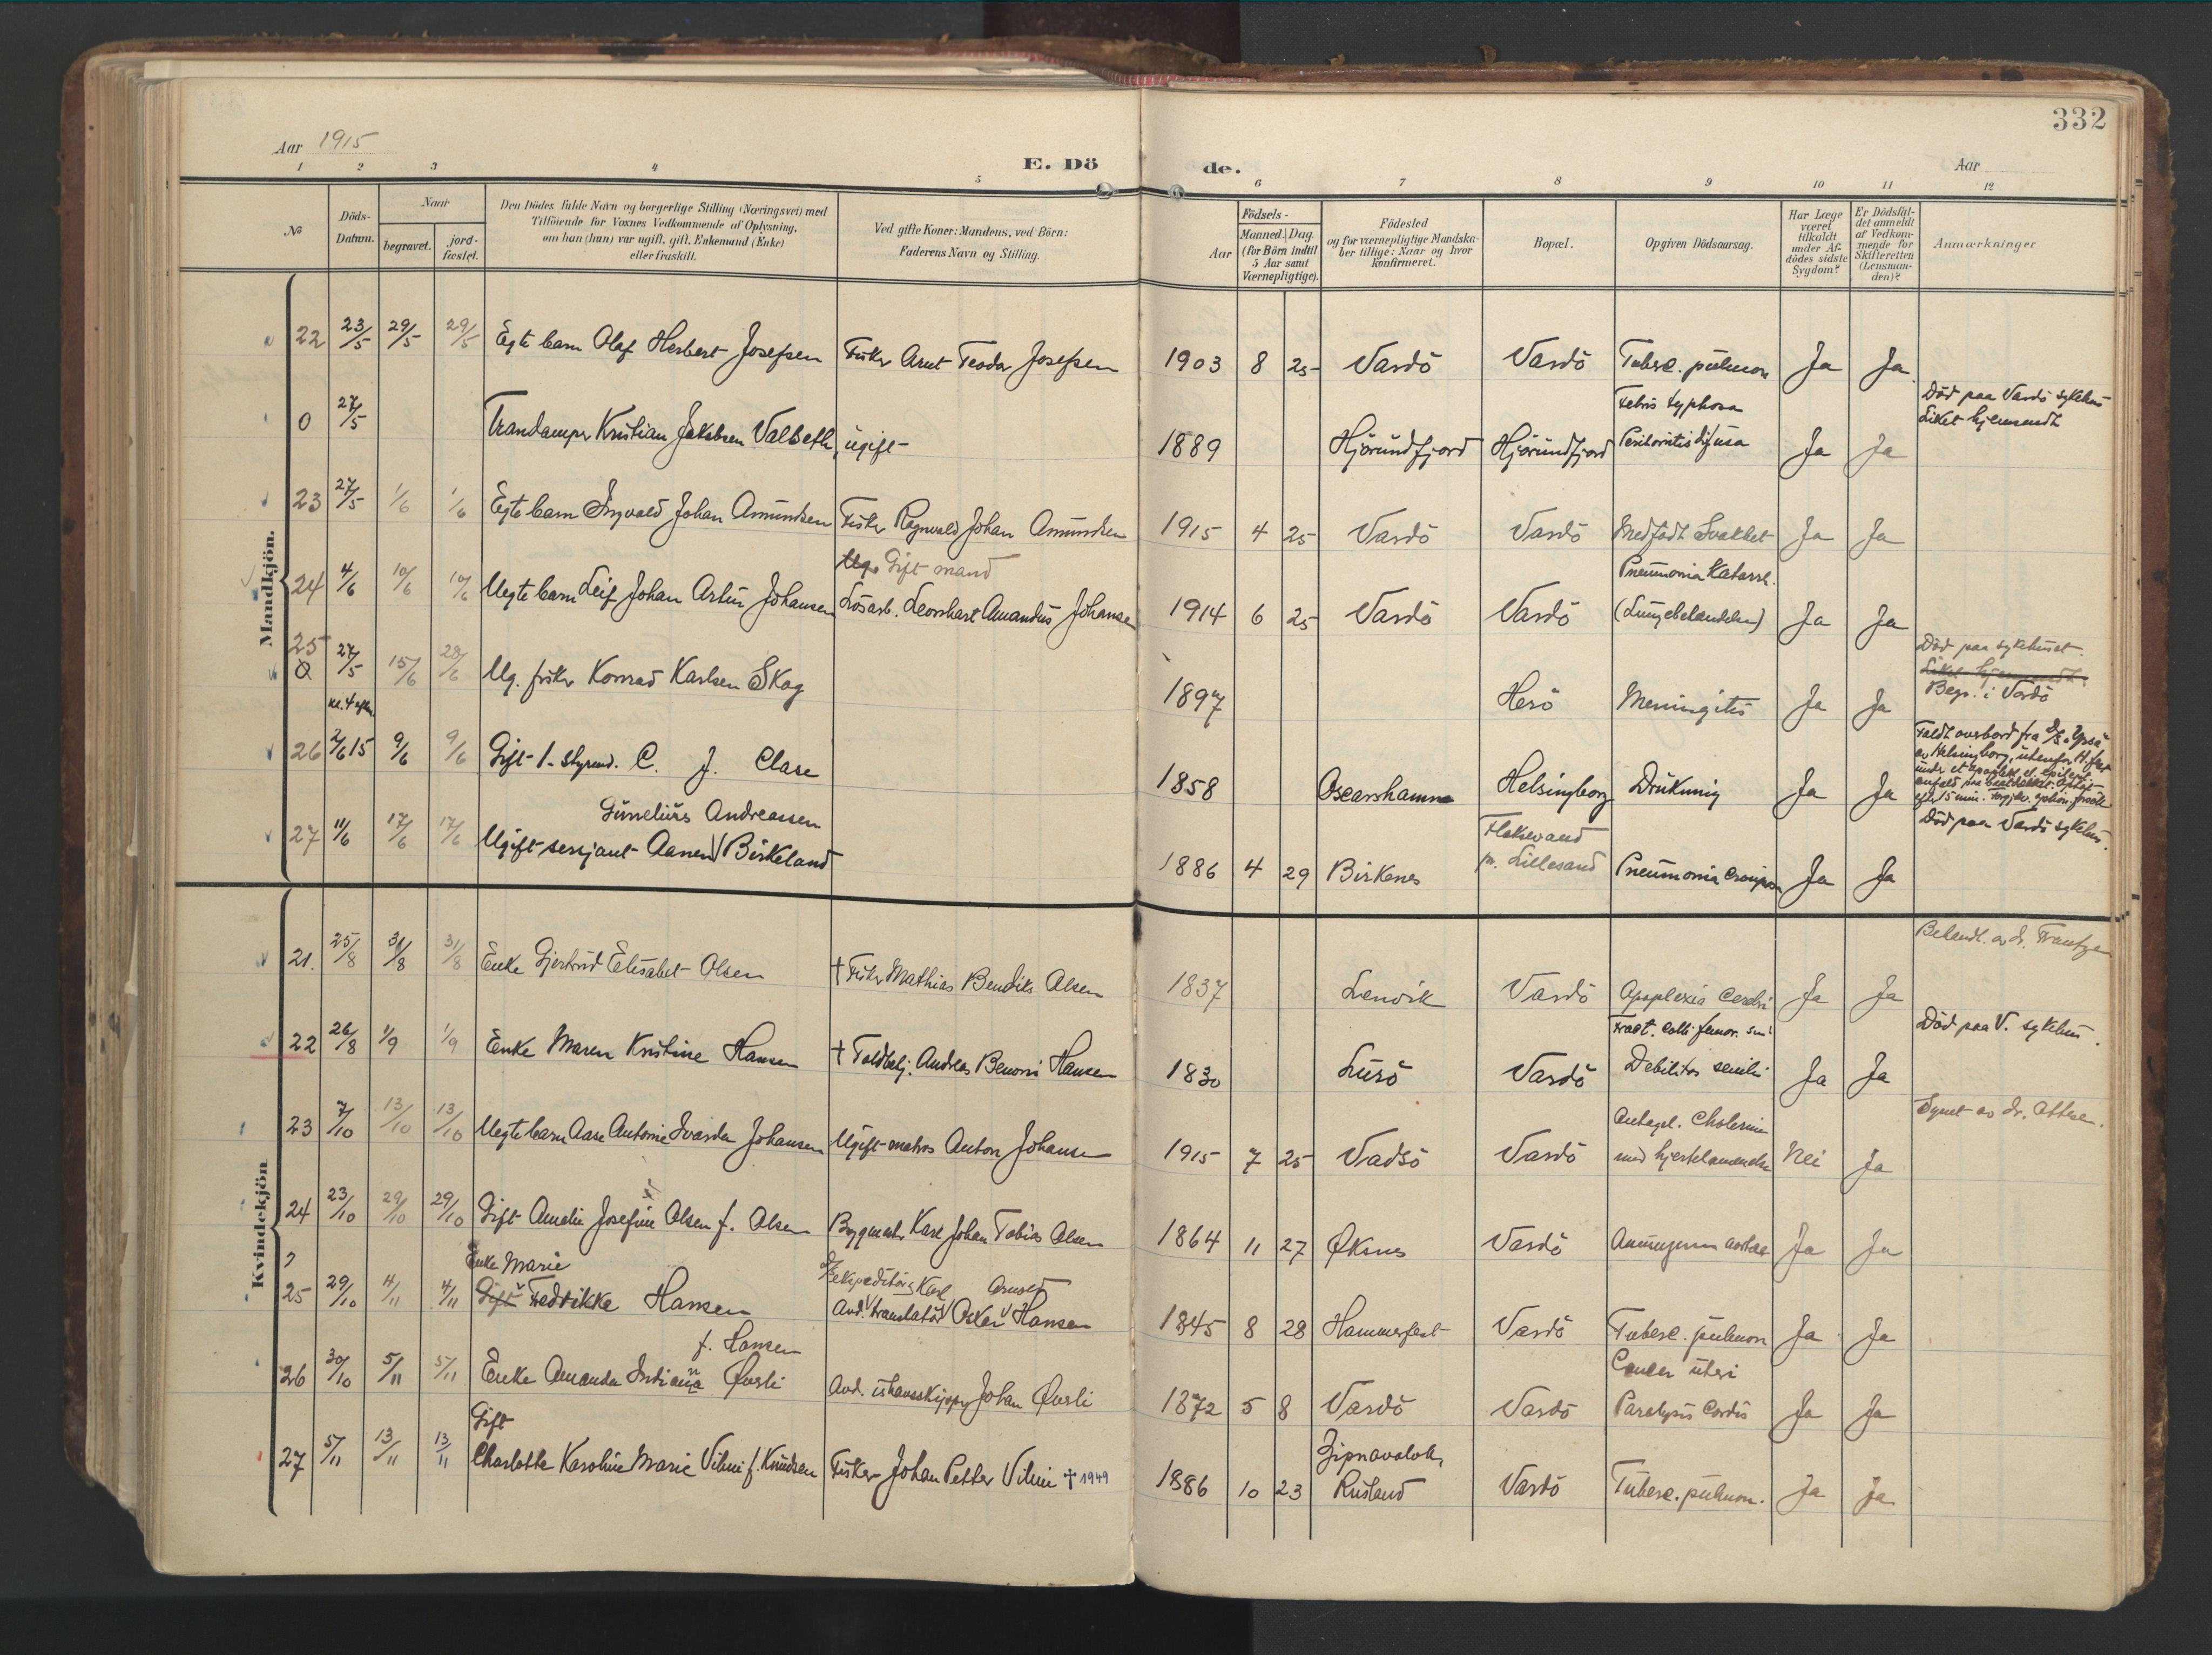 332
Aar 1915
E. Dö
de.
Aar
1 2 3 4 5 6 7 8 9 10 11 12
No
Döds-Datum.
Naar
begravet.
jord-fæstet.
Den Dödes fulde Navn og borgerlige Stilling (Næringsvei) med
Tilföiende for Voxnes Vedkommende af Oplysning,
om han (hun) var ugift, gift, Enkemand (Enke)
eller fraskilt.
Ved gifte Koner: Mandens, ved Börn:
Faderens Navn og Stilling.
Födsels-
Aar
Maaned. Dag.
(for Börn indtil
5 Aar samt
Værnepligtige).
Födested
og for værnepligtige Mandska-
ber tillige: Naar og hvor
konfirmeret.
Bopæl.
Opgiven Dödsaarsag.
Har Læge
været
tilkaldt
under Af-
dödes sidste
Sygdom?
Er Dödsfal-
det anmeldt
af Vedkom-
mende for
Skifteretten
(Lensman-
den)?
Anmærkninger
Mandkjön.
22 23/5 29/5 29/5 Egte barn Olaf Herbert Josefsen Fisker Arnt Teodor Josefsen 1903 8 25 Vardö Vardö Tuberc. pulmon Ja Ja
0 27/5 Trandamper Kristian Jakobsen Valseth, ugift 1889 Hjörundfjord Hjörundfjord Febris typhosa
Peritonitis difusa Ja Ja Död paa Vardö sykehus
Liket hjemsendt
23 27/5 1/6 1/6 Egte barn Ingvald Johan Amundsen Fisker Ragnvald Johan Amundsen 1915 4 25 Vardö Vardö Medfödt Svakhet Ja Ja
24 4/6 10/6 10/6 Uegte barn Leif Johan Artur Johansen Ug. Gift mand
Lösarb. Leonhart Amandus Johansen 1914 6 25 Vardö Vardö Pneumonia Katarrh.
(Lungebetændelse) Ja Ja
25
0 27/5 15/6 28/6 Ug. fisker Konrad Karlsen Skog 1897 Herö Meningitis Ja Ja Död paa sykehuset.
Liket hjemsendt.
Begr. i Vardö
kl. 4 efter.
26 2/6 15 9/6 9/6 Gift 1. styrmd. C. J. Clase 1858 Oscarshamn Helsingborg Drukning Ja Ja Faldt overbord fra D/S "Ypsa"
av Helsingborg, utenfor H.
efter 15 min.
27 11/6 17/6 17/6 Gunelius Andreassen
Ugift sersjant Aanen Birkeland 1886 4 29 Birkenes Flakevand
pr. Lillesand Pneumonia Crouposa Ja Ja Död paa Vardö sykehus.
Kvindekjön
21. 25/8 31/8 31/8 Enke Gjertrud Elisabet Olsen † Fisker Mathias Bendiks Olsen 1837 Lenvik Vardö Apoplexia Cerebri Ja Ja Behandl. av dr. Frantzen
22 26/8 1/9 1/9 Enke Maren Kristine Hansen † Toldbetj. Andreas Benoni Hansen 1830 Lurö Vardö Fract. colli femor. sin
Debilitas senilis Ja Ja Död paa V. sykehus.
23 7/10 13/10 13/10 Uegte barn Aase Antonie Svarda Johansen Ugift matros Anton Johansen 1915 7 25 Vadsö Vardö Antagel. Cholerine
med hjertelammelse Nei Ja Synet av dr. Attke.
24 23/10 29/10 29/10 Gift Amelie Josefine Olsen f. Olsen Bygmester Karl Johan Tobias Olsen 1864 11 27 Øksnes Vardö Aneurysma aortae Ja Ja
25 29/10 4/11 4/11 Enke Marie
Gift Fredrikke Hansen Ekspeditör Karl Arnolt
Avd. translatör Oskar Hansen 1845 8 28 Hammerfest Vardö Tuberc. pulmon Ja Ja
26 30/10 5/11 5/11 f. Hansen
Enke Amanda Indiana Øverli Avd. ishavsskipper Johan Øverli 1872 5 8 Vardö Vardö Cancer uteri
Paralysis Cordis Ja Ja
27 5/11 13/11 13/11 Gift
Charlotte Karoline Marie Vilmi f. Knudsen Fisker Johan Petter Vilmi † 1949 1886 10 23 Zipnavolok,
Rusland Vardö Tuberc. pulmon. Ja Ja